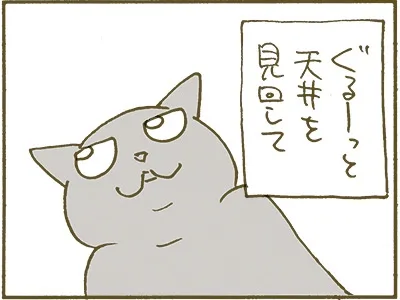 ぐるーっと
天井を
見回して